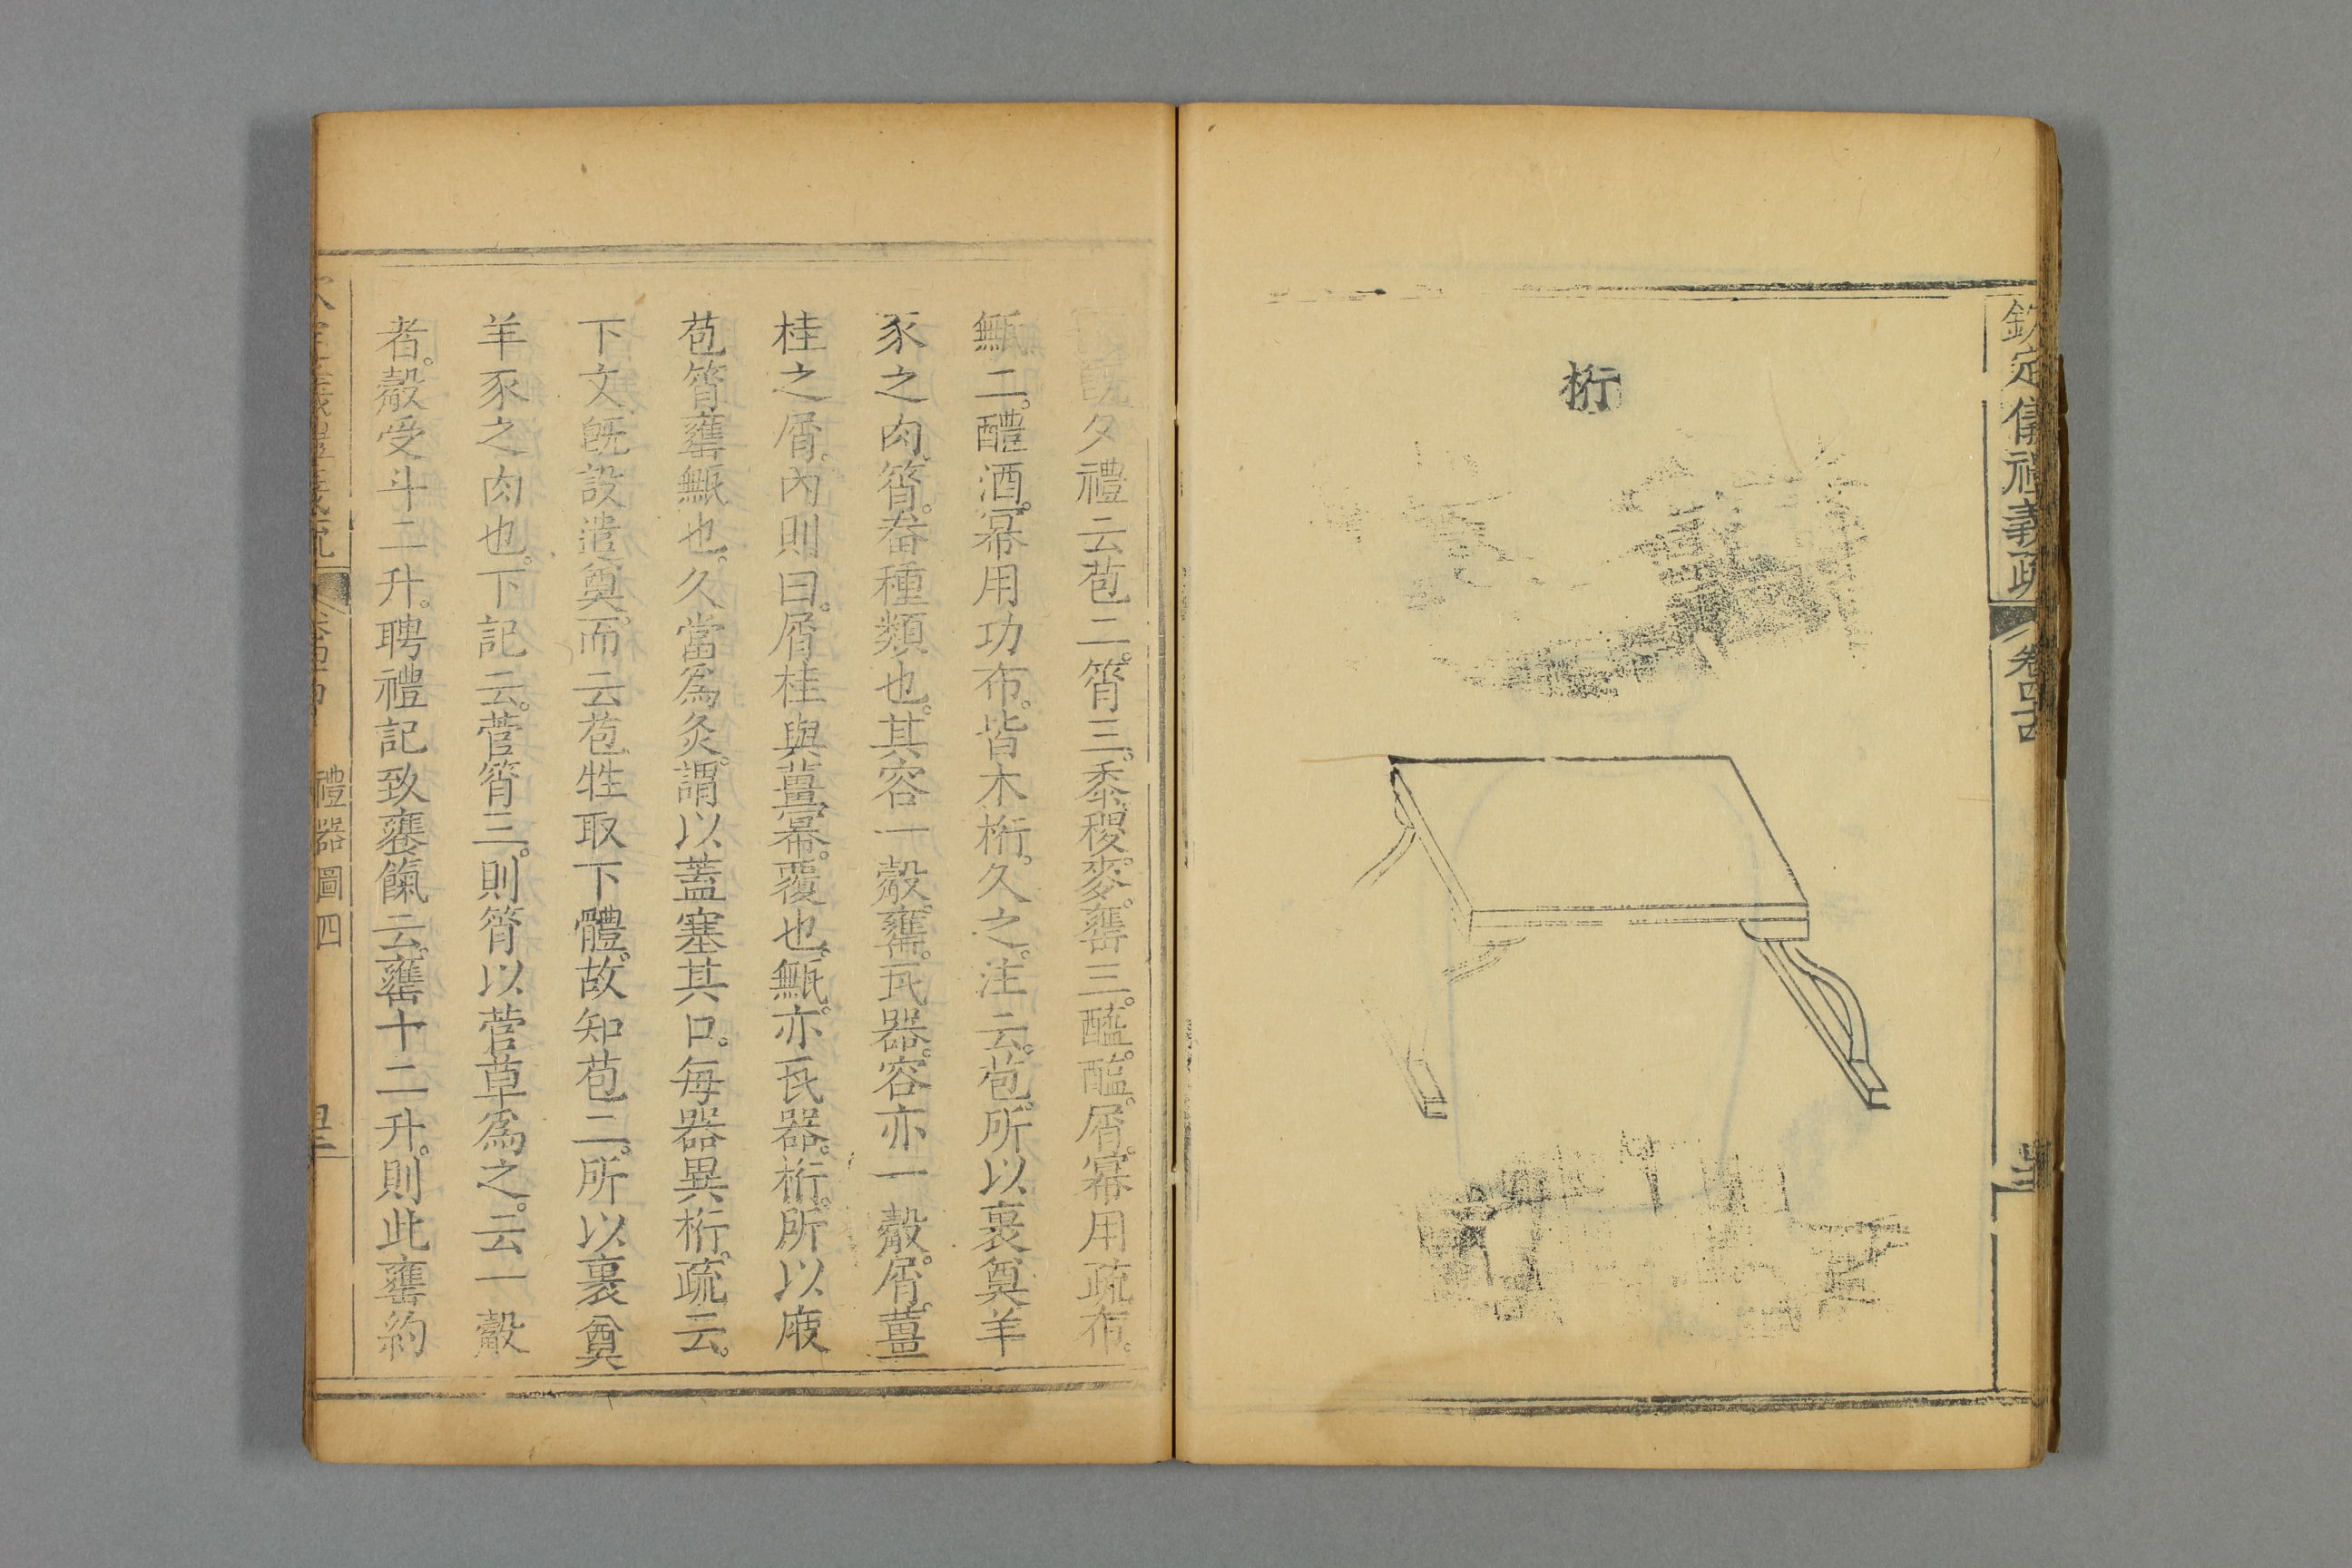 欽定儀禮義疏 卷四十四
桁
既夕禮云苞二。筲三。黍稷麥。罋三。醯醢。屑。冪用疏布。
甒二。醴酒。冪用功布。皆木桁。久之。注云。苞。所以裹奠羊
豕之肉。筲。畚種類也。其容一觳。罋。瓦器。容亦一觳。屑。薑
桂之屑。內則曰。屑桂與薑。冪。覆也。甒。亦瓦器。桁。所以庪
苞筲罋甒也。久當爲灸。謂以蓋塞其口。每器異桁。疏云。
下文既設遣奠。而云苞牲取下體。故知苞二。所以裹奠
羊豕之肉也。下記云。菅筲三。則筲以菅草爲之。云一觳
者。觳受斗二升。聘禮記致饔餼云。罋十二升。則此罋約
禮器圖四